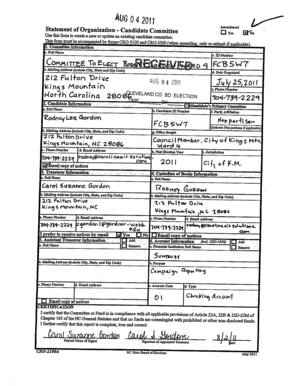 AUG 04 2011
Amendment
Yes No
Statement of Organization - Candidate Committee
Use this form to create a new or update an existing candidate committee.
This form must be accompanied by forms CRO-3100 and CRO-3500 (when opening, only on submit if applicable).
1. Committee Information
a. Full Name
b. ID Number
COMMITTEE TO ELECT WARD 4
FCB5W7
RECEIVED
b. Mailing Address (include City, State and Zip Code)
d. Date Organized
212 Fulton Drive
Kings Mountain
North Carolina 28086
AUG 04 2011
CLEVELAND CO BD ELECTION
July 25, 2011
e. Phone Number
704-739-2229
2. Candidate Information
Candidate's Primary Committee
a. Full Name
b. Candidate ID Number
f. Party Affiliation
Rodney Lee Gordon
FCB5W7
Nonpartisan
b. Mailing Address (include City, State and Zip Code)
g. Office Sought
212 Fulton Drive
Kings Mountain, NC 28086
Council Member, City of Kings Mtn.
Ward 4
c. Phone Number
d. Email Address
h. Next Election Year
i. Jurisdiction
704-739-2229
2011
City of K.M.
Email copy of notices
3. Treasurer Information
4. Custodian of Books Information
a. Full Name
a. Full Name
Carol Suzanne Gordon
Rodney Gordon
b. Mailing Address (include City, State and Zip Code)
b. Mailing Address (include City, State and Zip Code)
212 Fulton Drive
Kings Mountain, NC
212 Fulton Drive
Kings Mountain, NC 28086
c. Phone Number
d. Email Address
c. Phone Number
d. Email Address
704-739-2229
cgordon@gardner-webb.edu
704-739-2229
I prefer to receive notices by email Yes No
Email copy of notices
5. Assistant Treasurer Information
Add
Remove
6. Account Information (incl. CRO-3500)
Add
Remove
a. Full Name
a. Financial Institution Full Name
SunTrust
b. Mailing Address (include City, State and Zip Code)
b. Purpose
Campaign Reporting
c. Phone Number
d. Email Address
c. Account Code
d. Type
01
Checking Account
Email copy of notices
CERTIFICATION
I certify that the Committee or Fund is in compliance with all applicable provisions of Article 22A, 22B & 22D-22M of
Chapter 163 of the NC General Statutes and that no funds are commingled with prohibited or other non-disclosed funds.
I further certify that this report is complete, true and correct.
Carol Suzanne Gordon
Carol S. Gordon
8/2/11
Printed Name of Signer
Signature of Appointed Treasurer
Date
CRO-2100A
NC State Board of Elections
May 2011